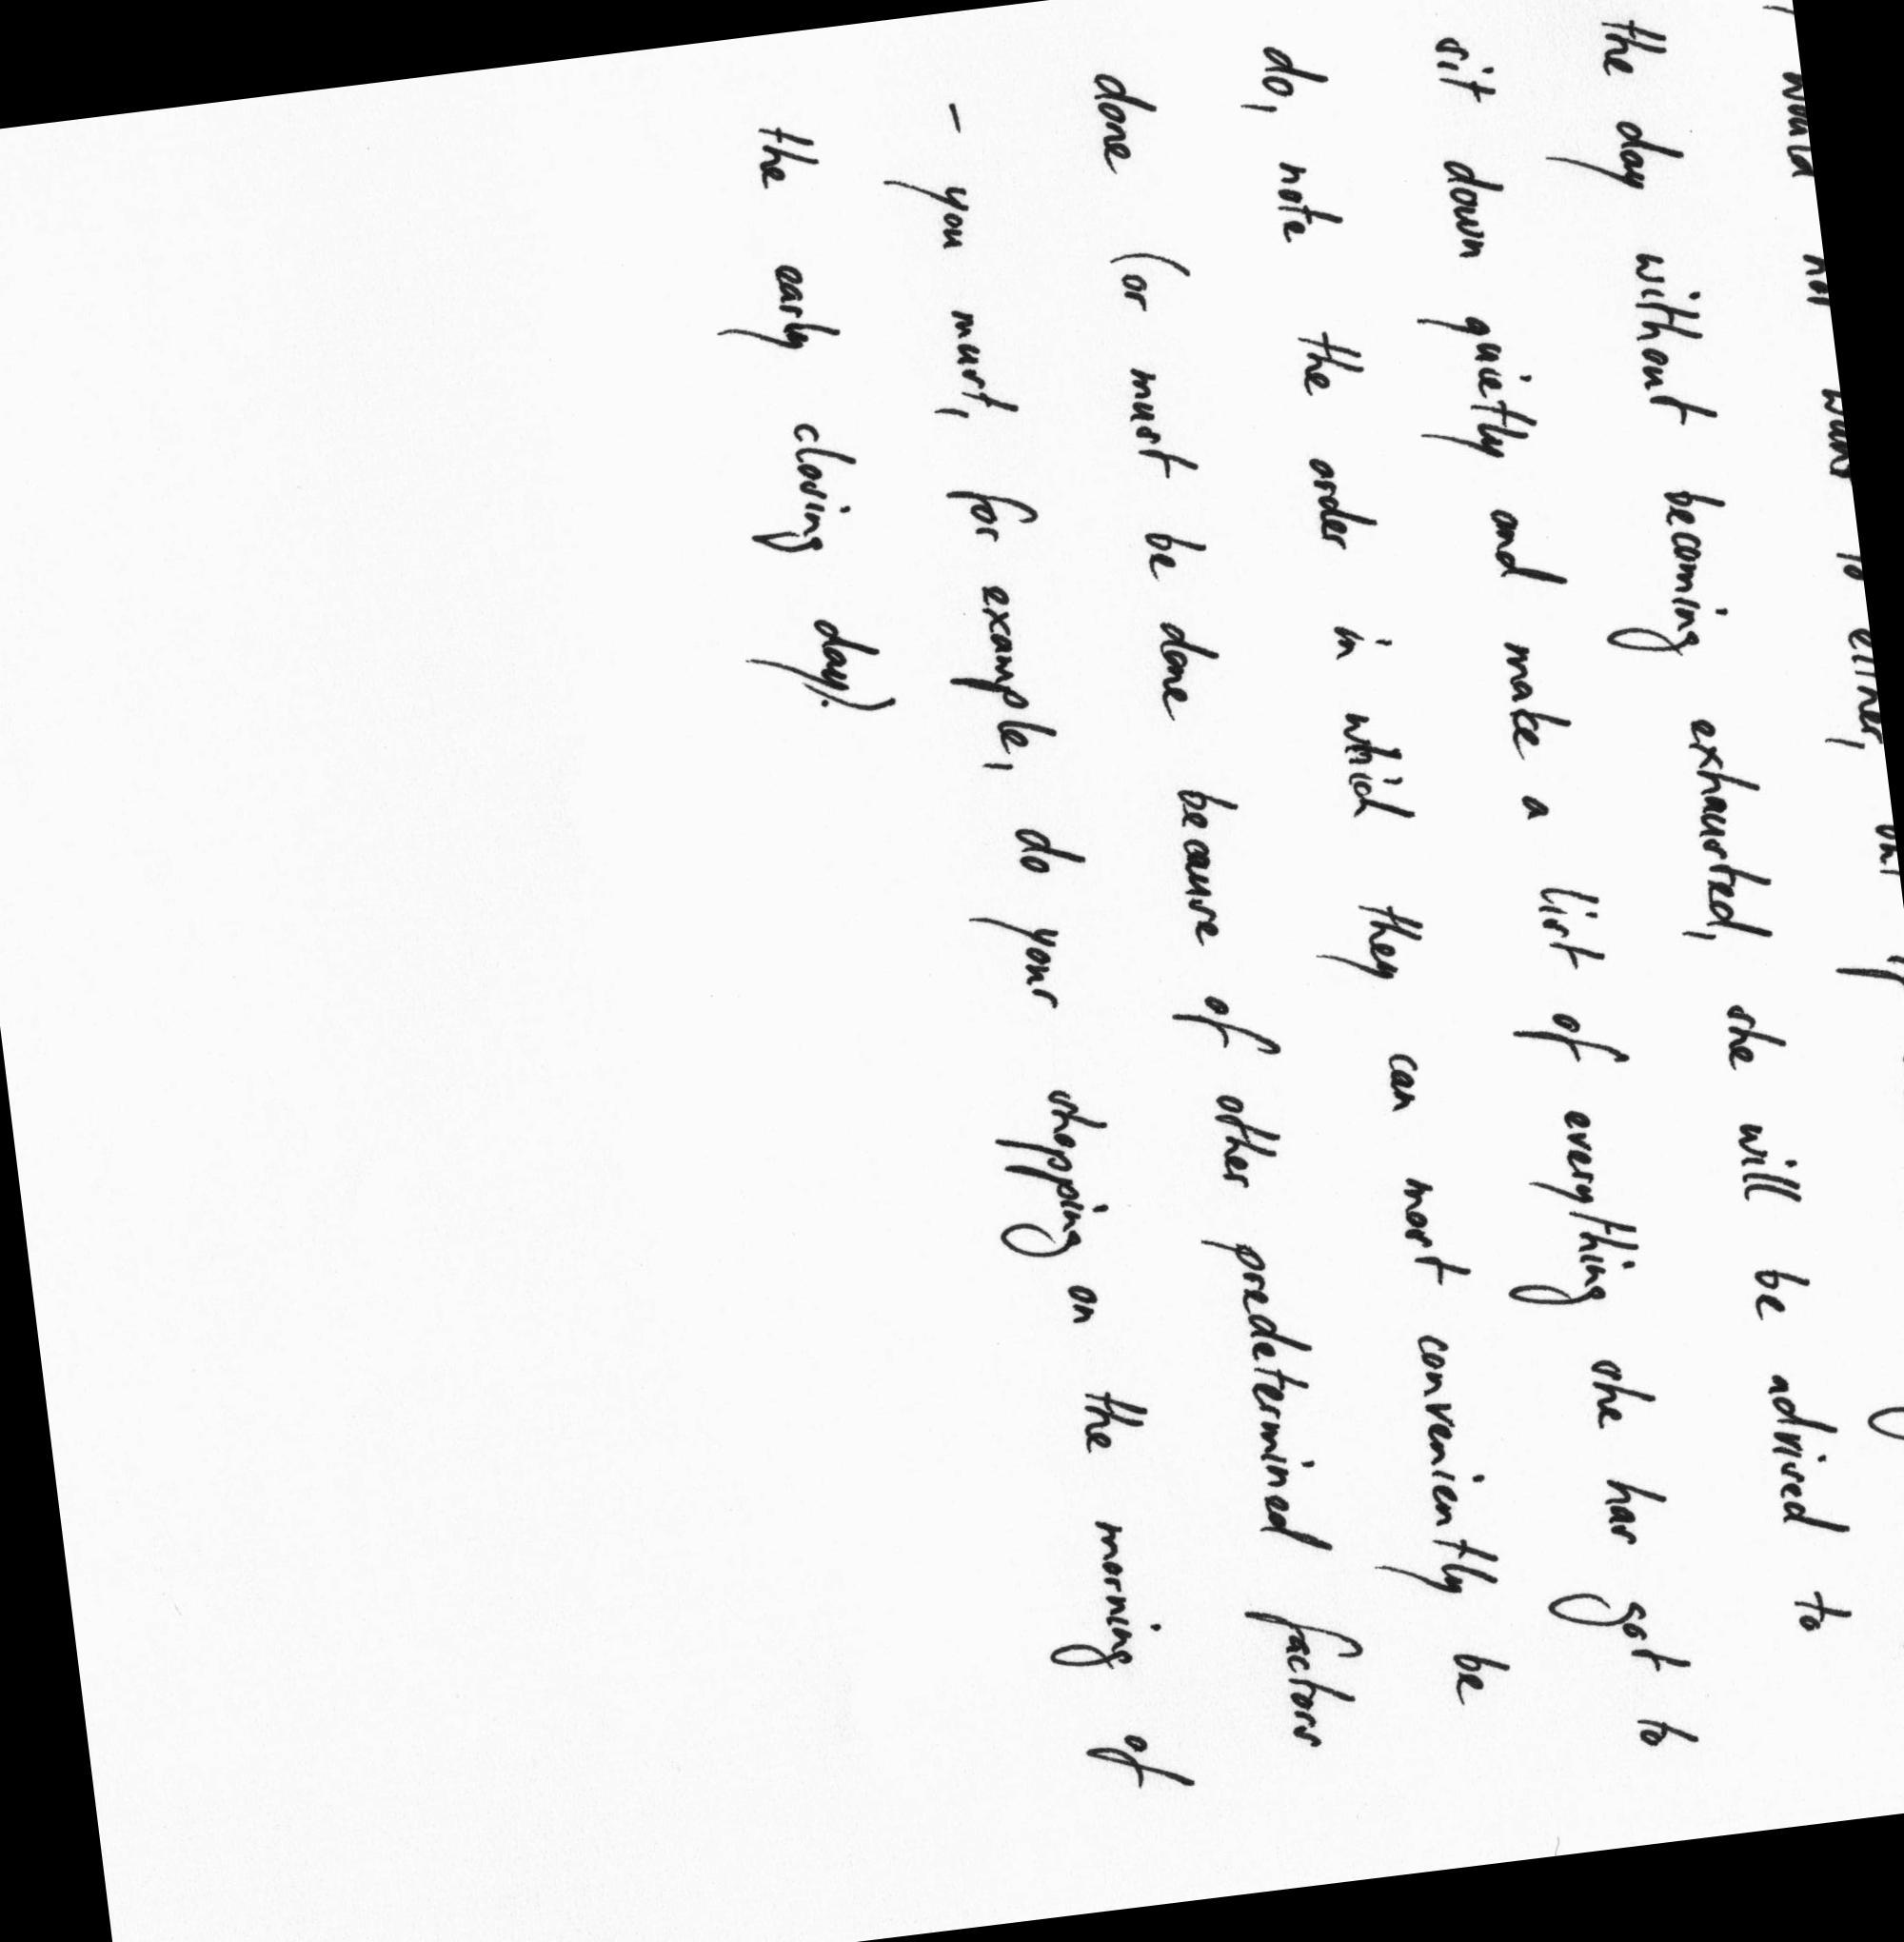 would not want to either,
the day without becoming exhausted, she will be advised to
sit down quietly and make a list of everything she has got to
do, note the order in which they can most conveniently be
done (or must be done because of other predetermined factors
- you must, for example, do your shopping on the morning of
the early closing day).